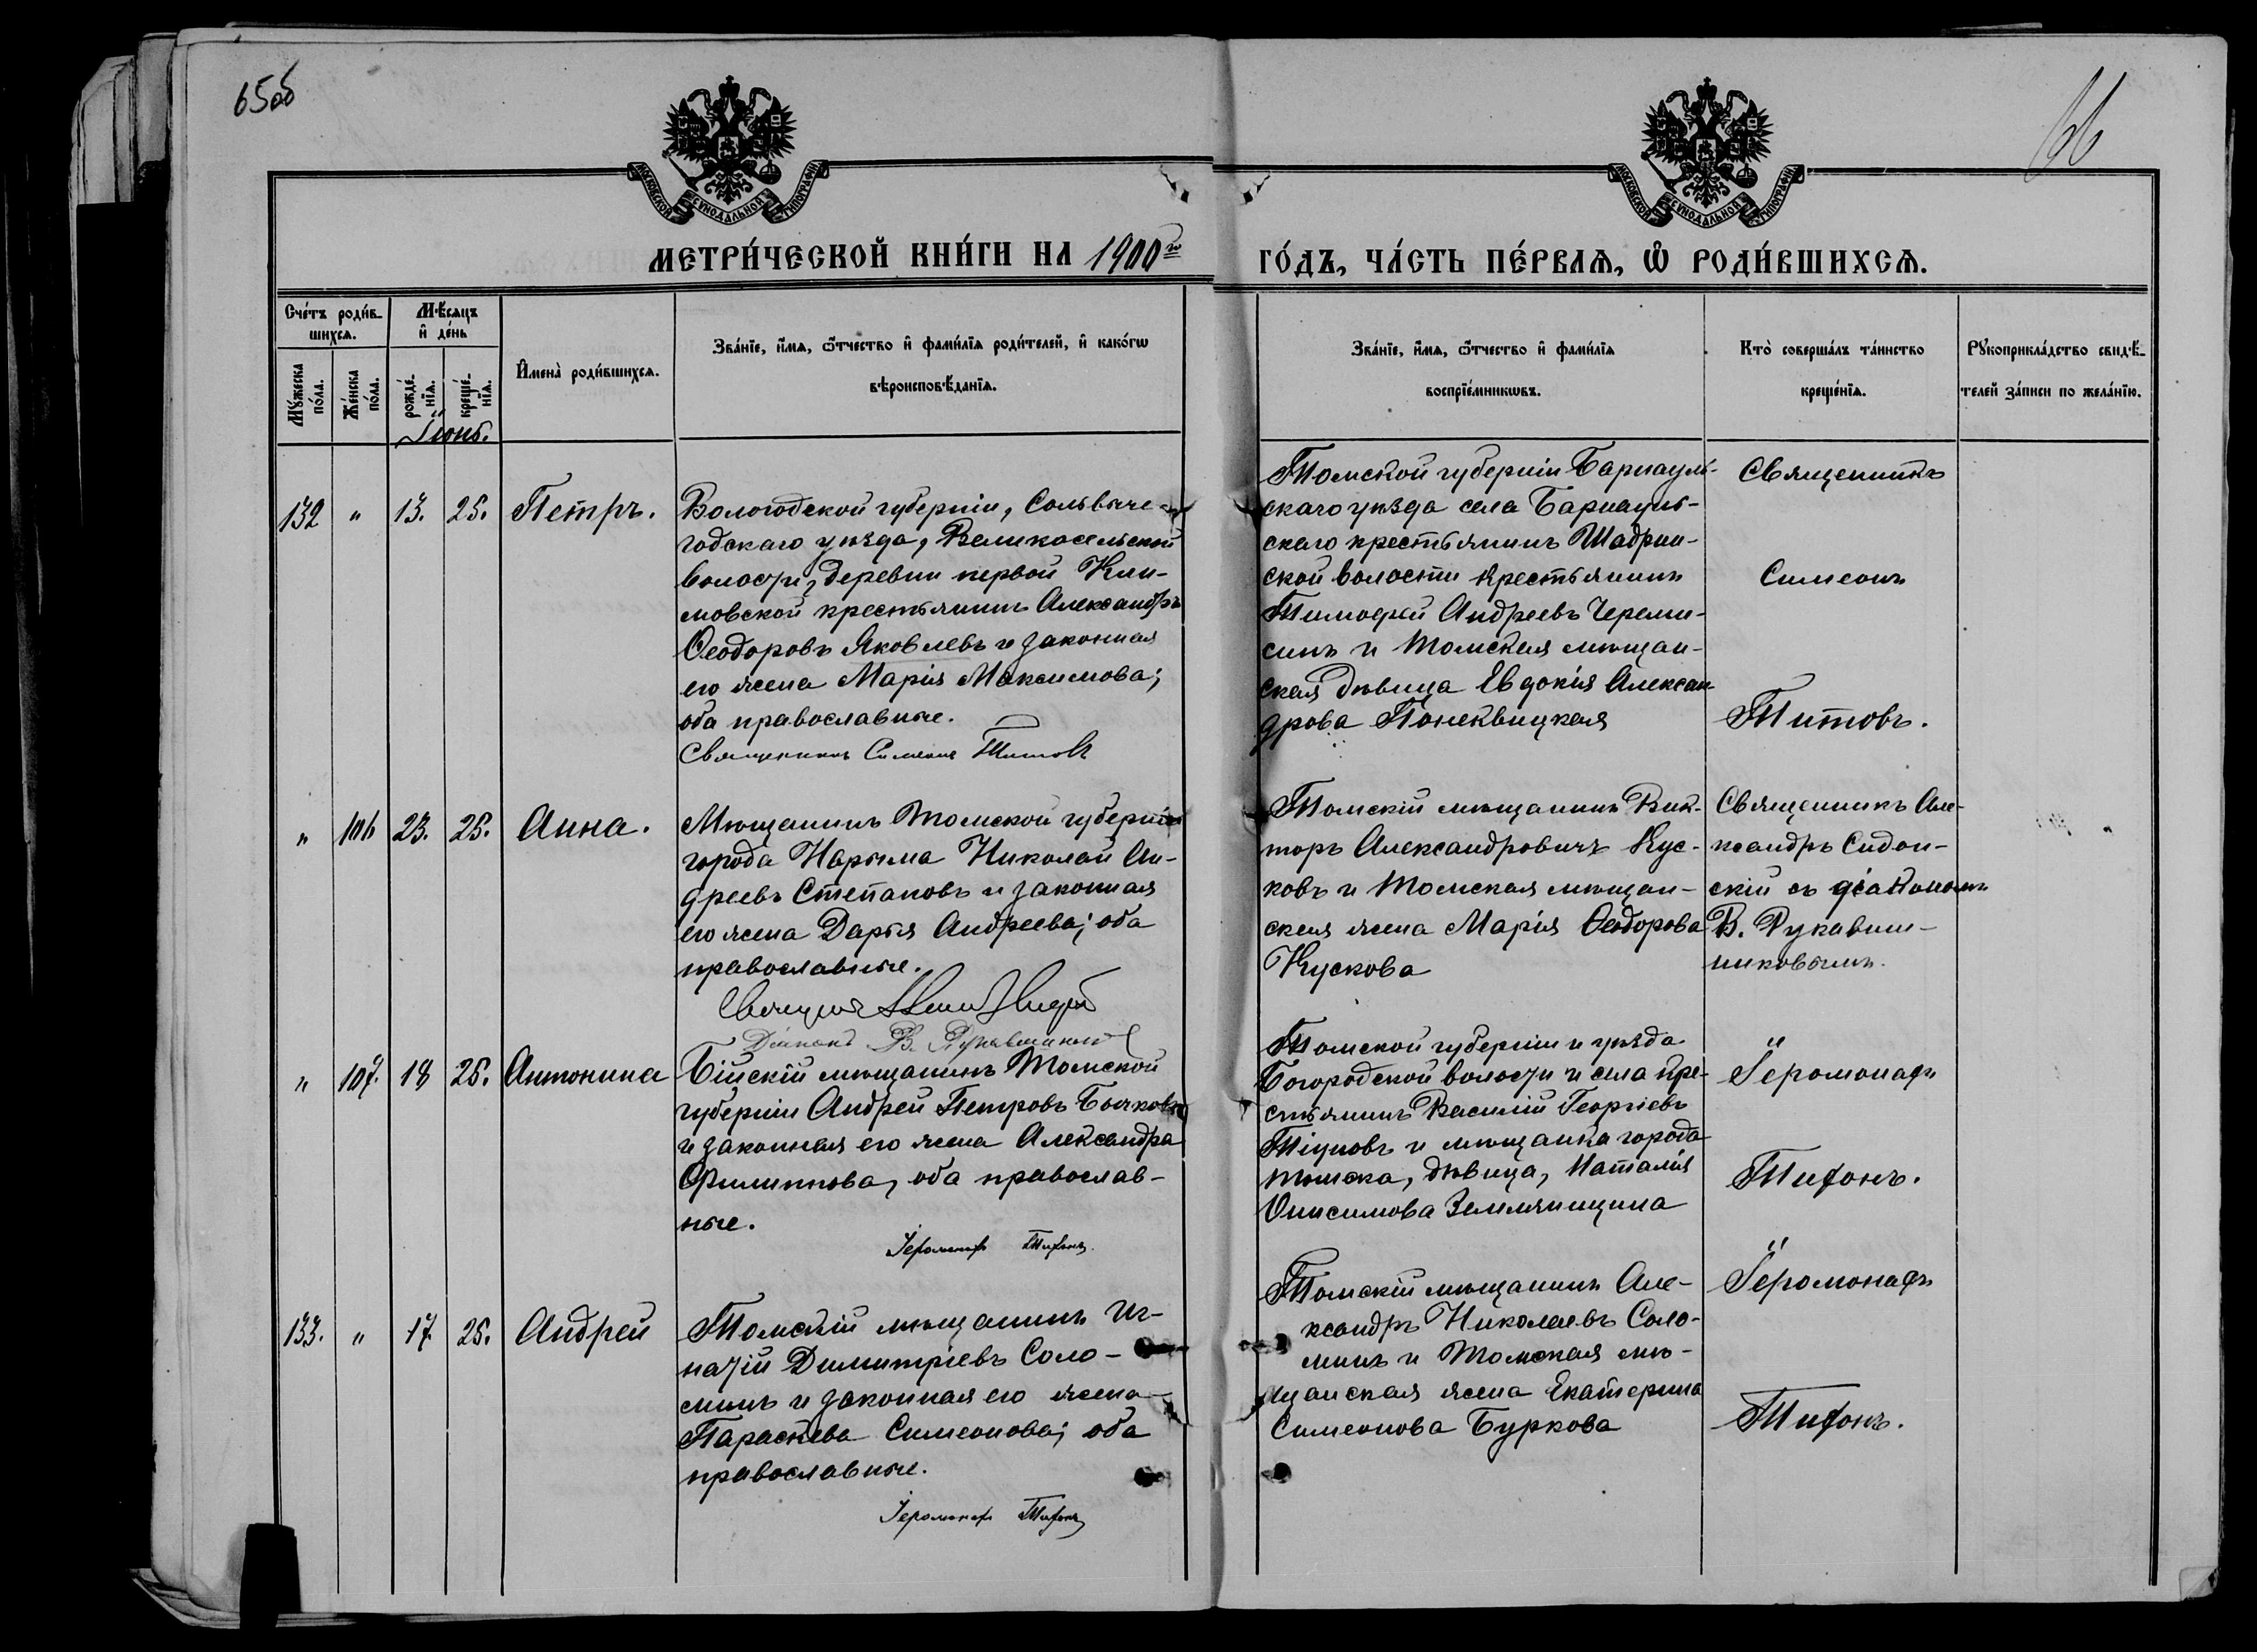 65об
66
МОСКОВСКОЙ СѴНОДАЛЬНОЙ ТИПОГРАФІИ
МОСКОВСКОЙ СѴНОДАЛЬНОЙ ТИПОГРАФІИ
МЕТРИ́ЧЕСКОЙ КНИ́ГИ НА 1900й
ГО́ДЪ, ЧА́СТЬ ПЕ́РВАѦ, Ѡ҆ РОДИ́ВШИХСѦ.
Сче́тъ роди́в-
шихсѧ.
Мѣ́сѧцъ
и҆ де́нь
Мꙋ́жеска
по́ла.
Же́нска
по́ла.
рожде́-
нїѧ.
креще́-
нїѧ.
И҆мена̀ роди́вшихсѧ.
Зва́нїе, и҆́мѧ, ѻ҆́тчество и҆ фами́лїѧ роди́телей, и҆ како́гѡ
вѣроисповѣ́данїѧ.
Зва́нїе, и҆́мѧ, ѻ҆́тчество и҆ фами́лїѧ
воспрїе́мникѡвъ.
Кто̀ соверша́лъ та́инство
креще́нїѧ.
Рꙋкоприкла́дство свидѣ́-
телей за́писи по жела́нїю.
Іюнь.
132 " 13. 25. Петръ.
Вологодской губерніи, Сольвыче-
годскаго уѣзда, Великосельской
волости, деревни первой Кли-
мовской крестьянинъ Александръ
Ѳеодоровъ Яковлевъ и законная
его жена Марія Максимова;
оба православные.
Священникъ Симеонъ Титовъ
Томской губерніи Барнауль-
скаго уѣзда села Барнауль-
скаго крестьянинъ Шадрин-
ской волости крестьянинъ
Тимофей Андреевъ Череми-
синъ и Томская мѣщан-
ская дѣвица Евдокія Алексан-
дрова Понеквицкая
Священникъ
Симеонъ
Титовъ.
" 106 23. 25. Анна.
Мѣщанинъ Томской губерніи
города Нарыма Николай Ан-
дреевъ Степановъ и законная
его жена Дарья Андреева; оба
православные.
Діаконъ В. Рукавишниковъ
Томскій мѣщанинъ Вик-
торъ Александровичъ Кус-
ковъ и Томская мѣщан-
ская жена Марія Ѳеодорова
Кускова
Священникъ Але-
ксандръ Сидон-
скій съ діакономъ
В. Рукавиш-
никовымъ.
" 107. 18 25. Антонина
Бійскій мѣщанинъ Томской
губерніи Андрей Петровъ Бычковъ
и законная его жена Александра
Филиппова, оба православ-
ные.
Іеромонахъ Тихонъ.
Томской губерніи и уѣзда
Богородской волости и села кре-
стьянинъ Василій Георгіевъ
Тіуновъ и мѣщанка города
Томска, дѣвица, Наталія
Онисимова Землянщина
Іеромонахъ
Тихонъ.
133. " 17. 25. Андрей
Томскій мѣщанинъ Иг-
натій Димитріевъ Соло-
минъ и законная его жена
Параскева Симеонова; оба
православные.
Іеромонахъ Тихонъ
Томскій мѣщанинъ Але-
ксандръ Николаевъ Соло-
минъ и Томская мѣ-
щанская жена Екатерина
Симеонова Буркова
Іеромонахъ
Тихонъ.